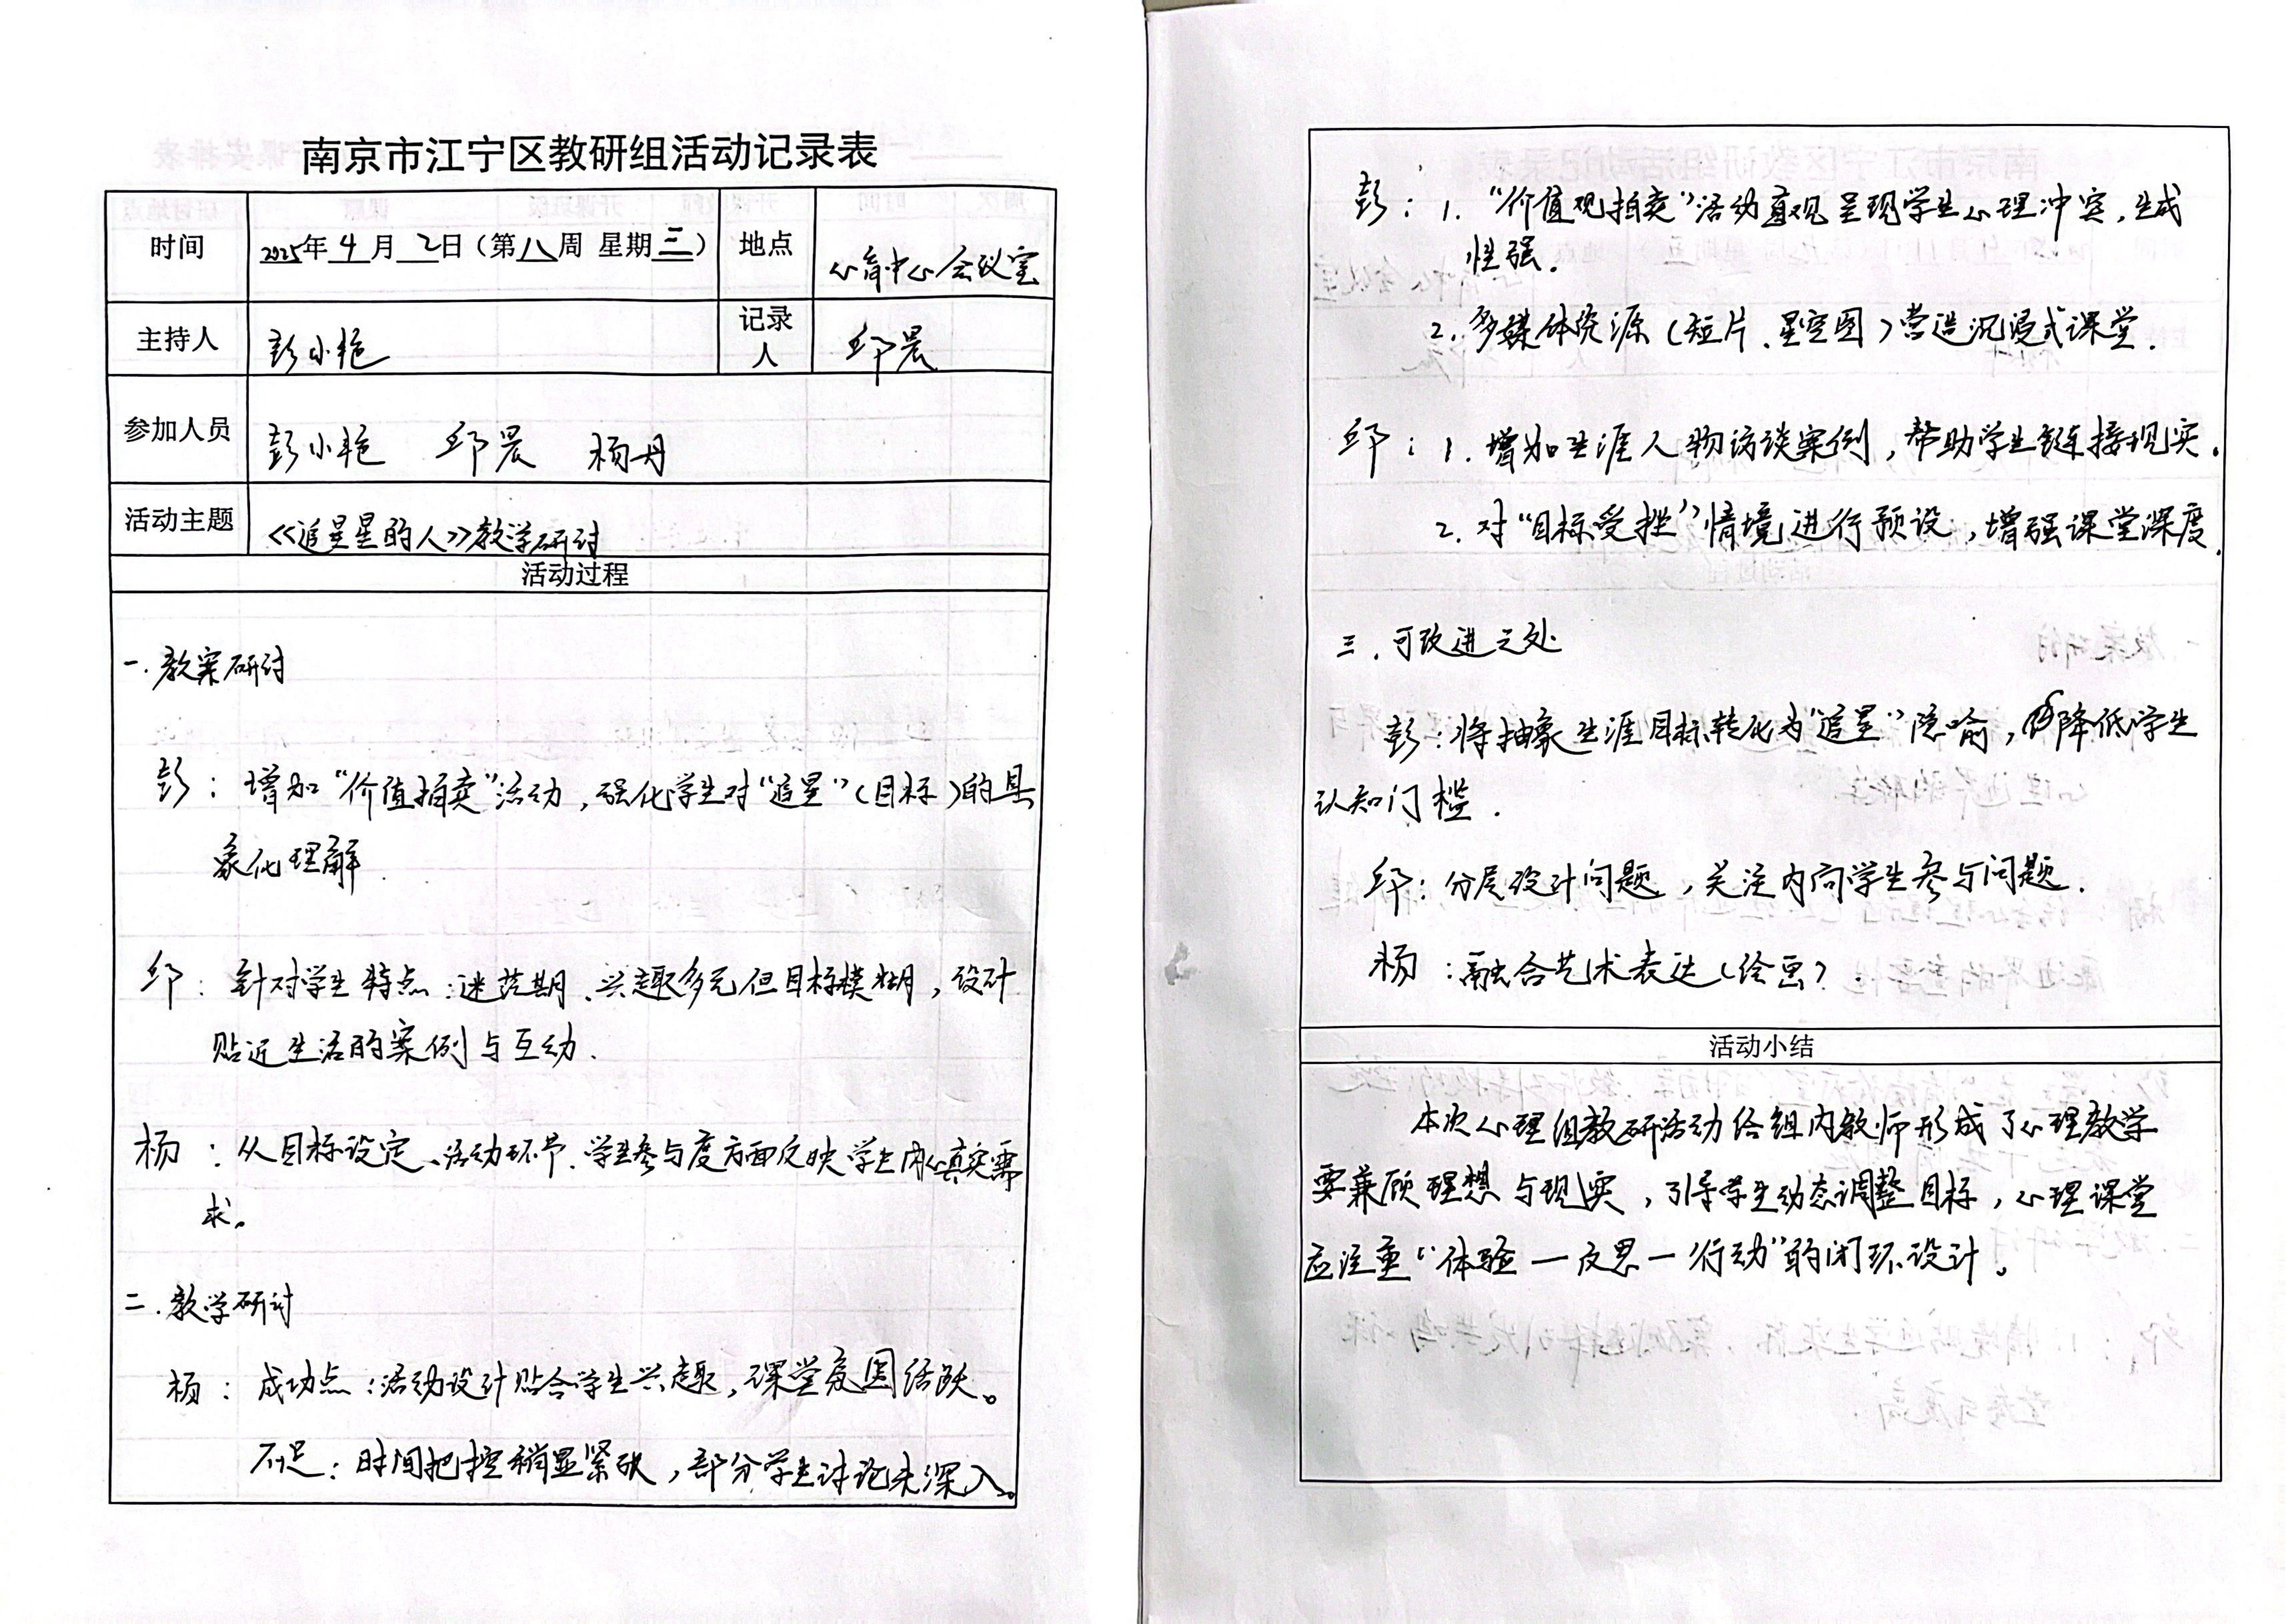 南京市江宁区教研组活动记录表
时间 2025年4月2日（第八周 星期三） 地点 心育中心会议室
主持人 彭小艳 记录人 邱晨
参加人员 彭小艳 邱晨 杨丹
活动主题 《追星星的人》教学研讨
活动过程
一.教案研讨
彭：增加“价值拍卖”活动，强化学生对“追星”（目标）的具
象化理解.
邱：针对学生特点：迷茫期、兴趣多元但目标模糊，设计
贴近生活的案例与互动.
杨：从目标设定、活动环节、学生参与度方面反映学生内心真实需
求。
二.教学研讨
杨：成功点：活动设计贴合学生兴趣，课堂氛围活跃。
不足：时间把控稍显紧张，部分学生讨论未深入。
彭：1.“价值观拍卖”活动直观呈现学生心理冲突，生成
性强.
2.多媒体资源（短片、星空图）营造沉浸式课堂.
邱：1.增加生涯人物访谈案例，帮助学生链接现实.
2.对“目标受挫”情境进行预设，增强课堂深度.
三.可改进之处
彭：将抽象生涯目标转化为“追星”隐喻，降低学生
认知门槛.
邱：分层设计问题，关注内向学生参与问题.
杨：融合艺术表达（绘画）.
活动小结
本次心理组教研活动给组内教师形成了心理教学
要兼顾理想与现实，引导学生动态调整目标，心理课堂
应注重“体验—反思—行动”的闭环设计。